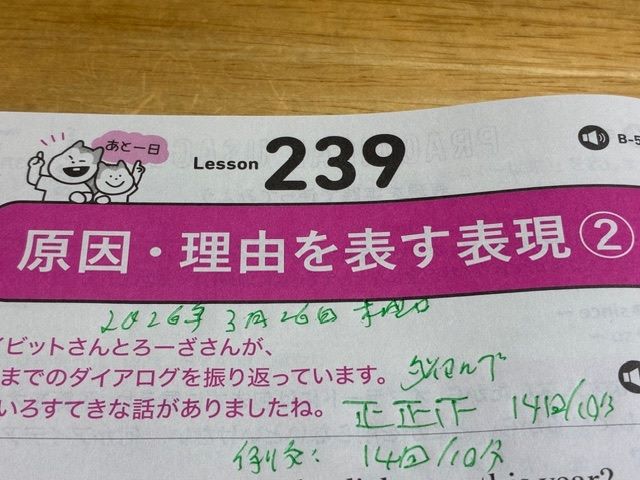 あと一日
Lesson 239
B-5
原因・理由を表す表現②
2026年 3月26日 木曜日
イビットさんとろーざさんが、
までのダイアログを振り返っています。
いろすてきな話がありましたね。
正正下 14回/10分
例文: 14回/10分
this year?